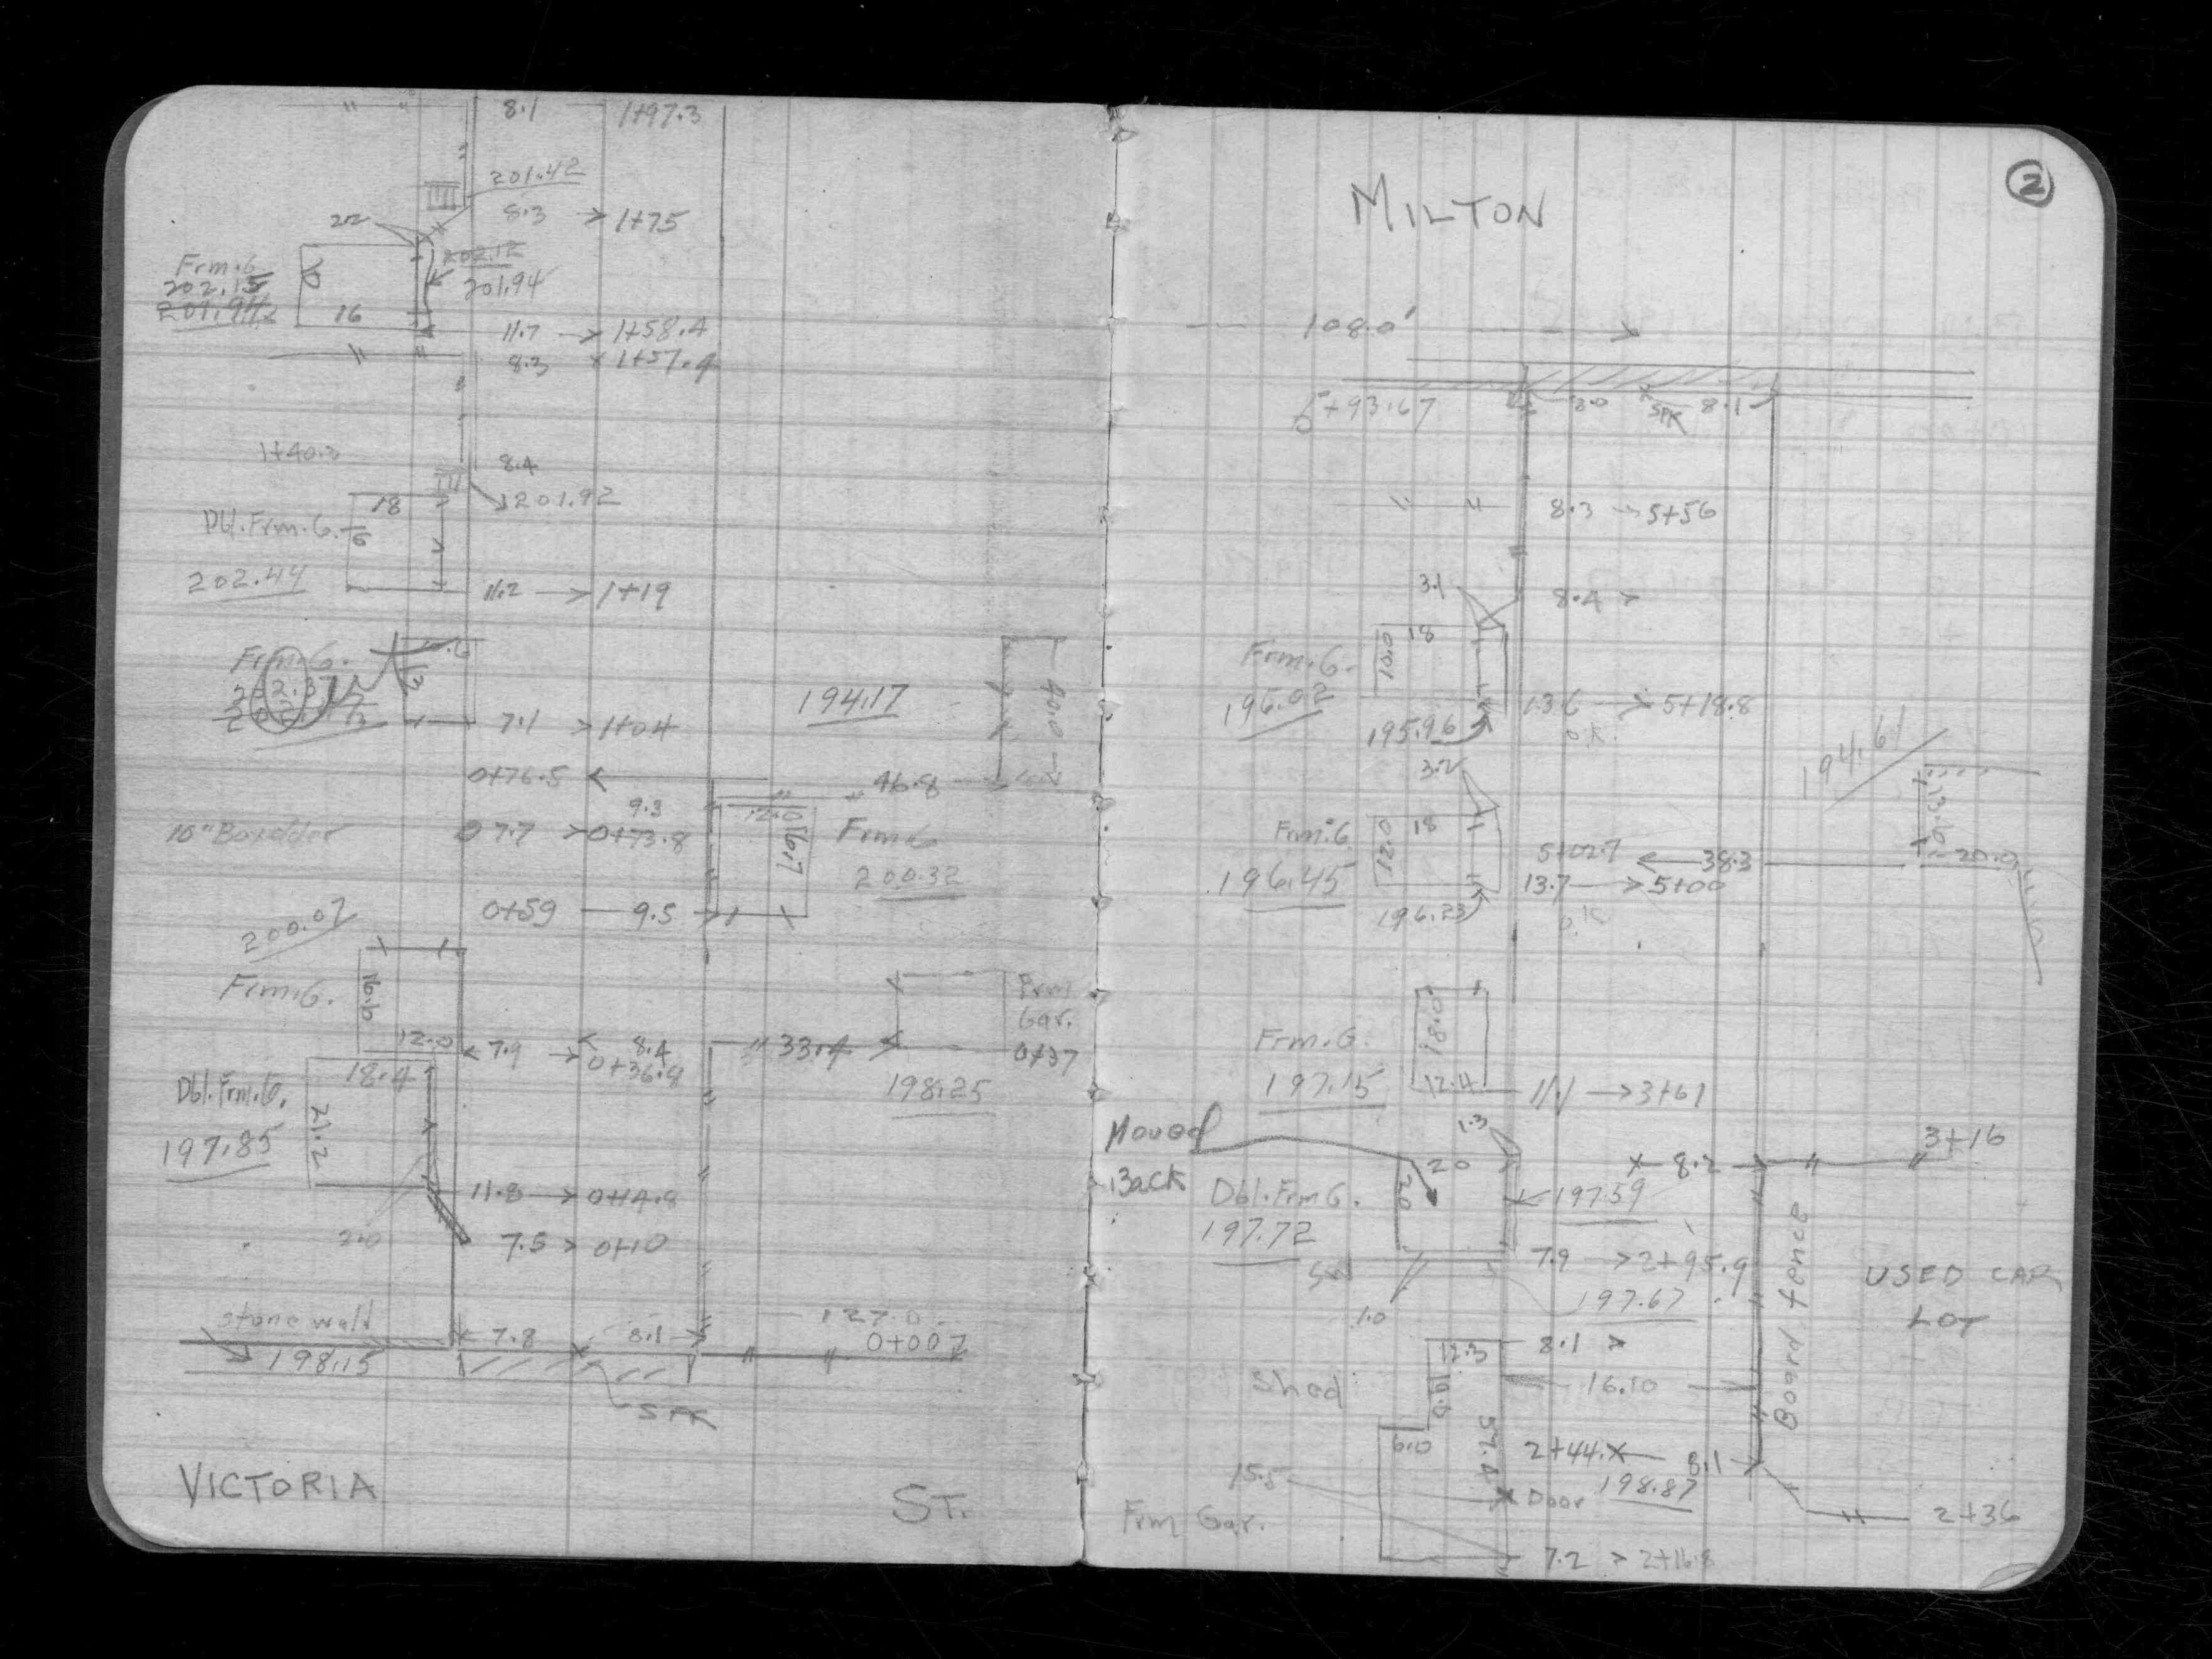 8.1 1+97.3
201.42
8.3 1+75
Frm.G
202.15
201.94
16
11.7 1+58.4
8.3 1+57.4
1+40.3
8.4
201.92
18
Dbl.Frm.G.
202.44
11.2 1+19
Frm.G.
7.1 1+04
194.17
40.0
0+76.5 46.8
9.3
12.0
10" Boxelder 7.7 0+73.8
16.7
Frm.G
200.32
0+59 9.5
200.07
Frm.G.
16.6
12.0
7.9 8.4
0+36.8
33.4
Frm
Gar.
0+37
198.25
18.4
Dbl.Frm.G.
197.85
21.2
11.8 0+14.8
2.0
7.5 0+10
stone wall
198.15
7.8 8.1
127.0
0+00
SPK
VICTORIA ST.
2
MILTON
108.0'
5+93.67
8.0 SPK 8.1
8.3 5+56
3.1
8.4
Frm.G.
196.02
10.0
18
195.96
13.6 5+18.8
O.K.
194.61
13.6
20.0
3.2
Frm.G
196.45
12.0
18
196.23
5+02.7 38.3
13.7 5+00
O.K.
Frm.G.
197.15
18.0
12.4
11.1 3+61
Moved
Back
1.3
20
20
Dbl.Frm G.
197.72
8.2 3+16
197.59
7.9 2+95.9
197.67
1.0
Board fence
USED CAR
LOT
Shed
12.3
8.1
16.10
6.0
57.4
2+44. 8.1
15.5
Door 198.87
Frm Gar.
2+36
7.2 2+16.8